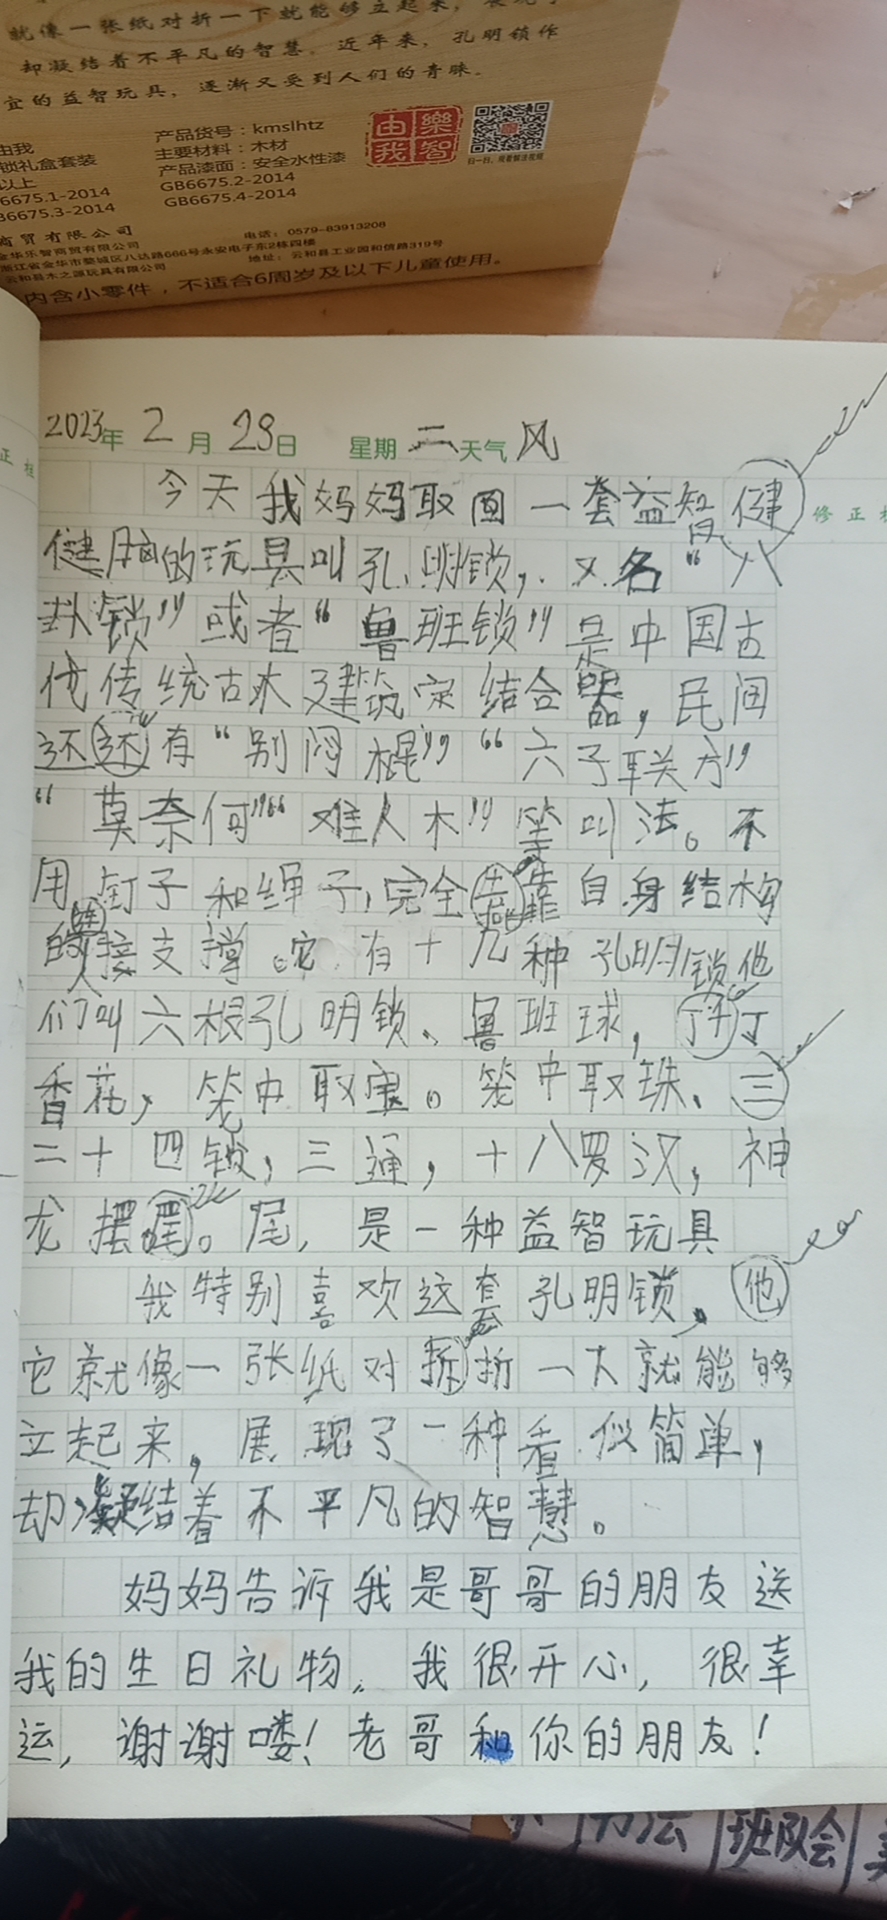 就像一张纸对折一下就能够立起来，展现了
却凝结着不平凡的智慧。近年来，孔明锁作
宜的益智玩具，逐渐又受到人们的青睐。
由我
锁礼盒套装
以上
6675.1-2014
6675.3-2014
产品货号：kmslhtz
主要材料：木材
产品漆面：安全水性漆
GB6675.2-2014
GB6675.4-2014
由我 樂智
扫一扫，观看解法视频
商贸有限公司
金华乐智商贸有限公司
电话：0579-83913208
浙江省金华市婺城区八达路666号永安电子东2栋四楼
地址：云和县工业园和信路319号
云和县木之源玩具有限公司
内含小零件，不适合6周岁及以下儿童使用。
2023年2月28日 星期二 天气 风
今天我妈妈取回一套益智健
健脑的玩具叫孔明锁，又名“八
卦锁”或者“鲁班锁”是中国古
代传统古木建筑定结合器，民间
还还有“别闷棍”“六子联方”
“莫奈何”“难人木”等叫法。不
用钉子和绳子，完全靠自身结构
的连接支撑。它有十几种孔明锁他
们叫六根孔明锁、鲁班球，丁
香花，笼中取宝。笼中取珠、三
二十四锁，三通，十八罗汉，神
龙摆尾。尾，是一种益智玩具
我特别喜欢这套孔明锁，他
它就像一张纸对折折一下就能够
立起来，展现了一种看似简单，
却凝结着不平凡的智慧。
妈妈告诉我是哥哥的朋友送
我的生日礼物。我很开心，很幸
运，谢谢喽！老哥和你的朋友！
修正
书法 班队会